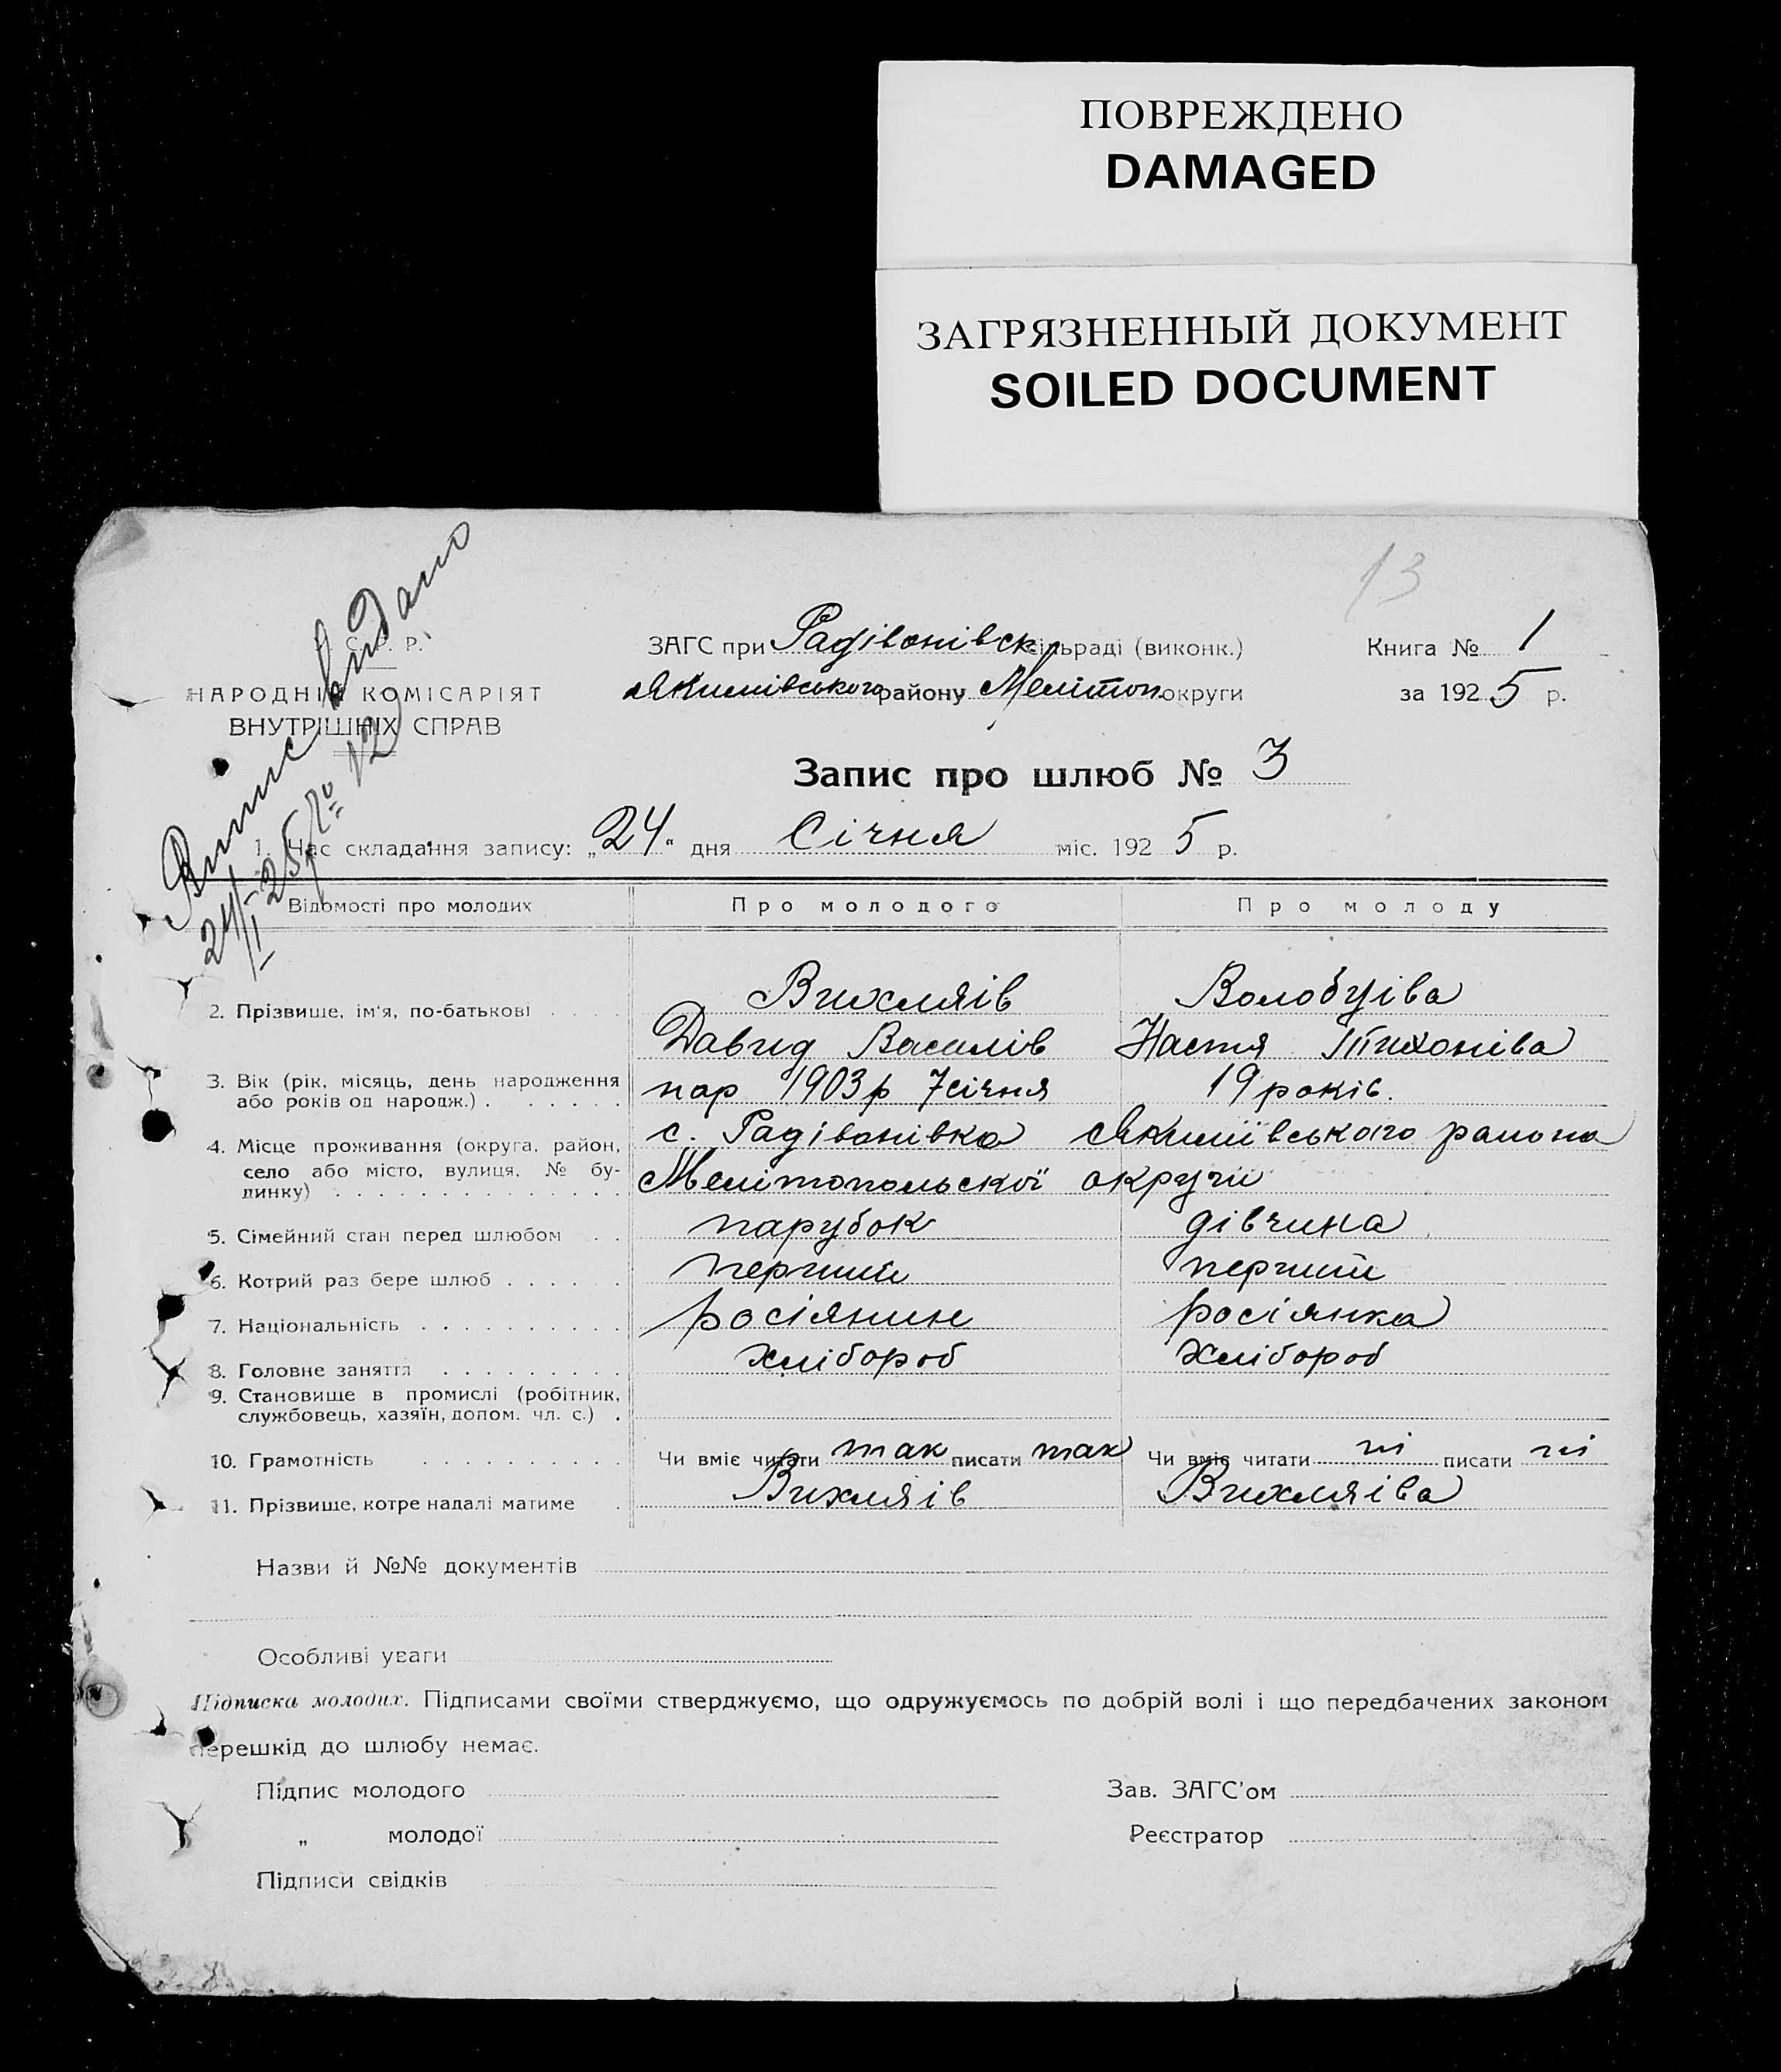 ПОВРЕЖДЕНО
DAMAGED
ЗАГРЯЗНЕННЫЙ ДОКУМЕНТ
SOILED DOCUMENT
13
Випис видано
24/I-25 р № 12
С. Р. Р.
НАРОДНІЙ КОМІСАРІЯТ
ВНУТРІШНІХ СПРАВ
ЗАГС при Радівонівск сільраді (виконк.) Книга № 1
Якимівського району Мелітоп. округи за 1925 р.
Запис про шлюб № 3
1. Час складання запису: „24“ дня Січня міс. 1925 р.
Відомості про молодих Про молодого Про молоду
2. Прізвище, ім'я, по-батькові . . . . Вихляїв Волобуїва
Давид Василів Настя Тихонівa
3. Вік (рік, місяць, день народження або років од народж.) . . . . . . нар 1903 р 7 січня 19 років.
4. Місце проживання (округа, район, село або місто, вулиця, № будинку) . . . . . . . . . . . . . с. Радівонівка Якимівського района
Мелітопольскої округи
5. Сімейний стан перед шлюбом . . парубок дівчина
6. Котрий раз бере шлюб . . . . . перший перший
7. Національність . . . . . . . . . . росіянин росіянка
8. Головне заняття . . . . . . . . . хлібороб хлібороб
9. Становище в промислі (робітник, службовець, хазяїн, допом. чл. с.) .
10. Грамотність . . . . . . . . . . Чи вміє читати так писати так Чи вміє читати ні писати ні
11. Прізвище, котре надалі матиме . Вихляїв Вихляїва
Назви й №№ документів
Особливі уваги
Підписка молодих. Підписами своїми стверджуємо, що одружуємось по добрій волі і що передбачених законом
перешкід до шлюбу немає.
Підпис молодого Зав. ЗАГС'ом
„ молодої Реєстратор
Підписи свідків